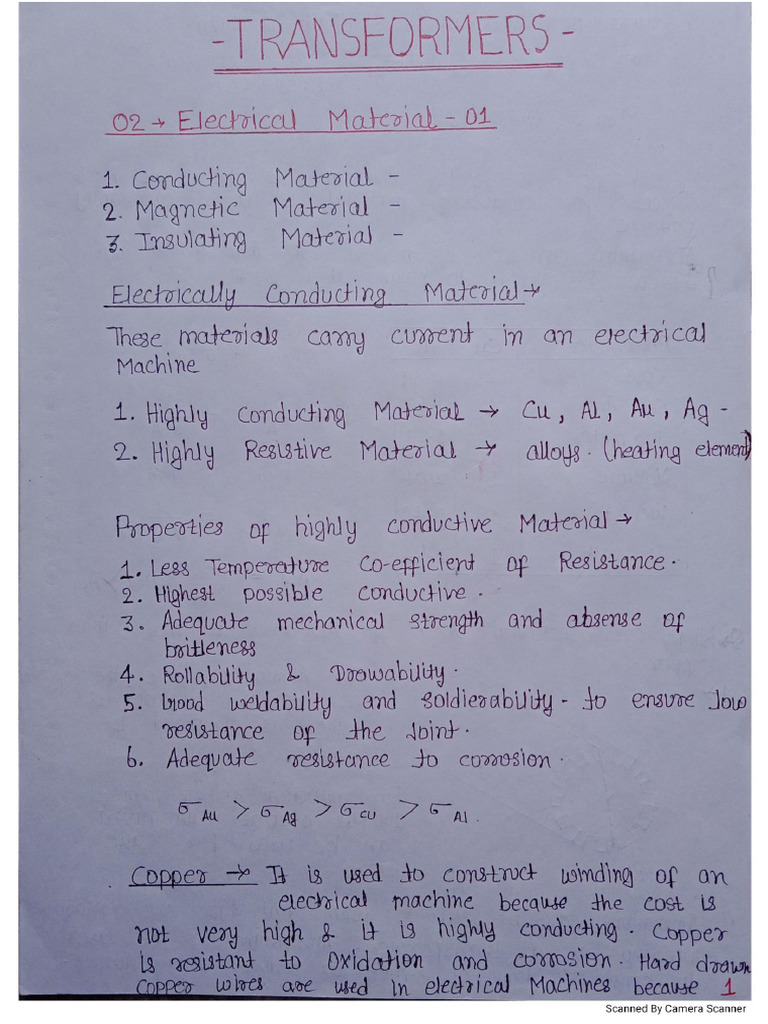 -TRANSFORMERS-
02→ Electrical Material - 01
1. Conducting Material -
2. Magnetic Material -
3. Insulating Material -
Electrically Conducting Material→
These materials carry current in an electrical
Machine
1. Highly Conducting Material → Cu, Al, Au, Ag -
2. Highly Resistive Material → alloys. (heating element)
Properties of highly conductive Material→
1. Less Temperature Co-efficient of Resistance.
2. Highest possible conductive.
3. Adequate mechanical strength and absense of
britleness
4. Rollability & Drowability.
5. Good weldability and soldierability - to ensure low
resistance of the Joint.
6. Adequate resistance to corrosion.
σAu > σAg > σCu > σAl.
Copper → It is used to construct winding of an
electrical machine because the cost is
not very high & it is highly conducting. Copper
is resistant to Oxidation and corrosion. Hard drawn
Copper wires are used in electrical Machines because 1
Scanned By Camera Scanner